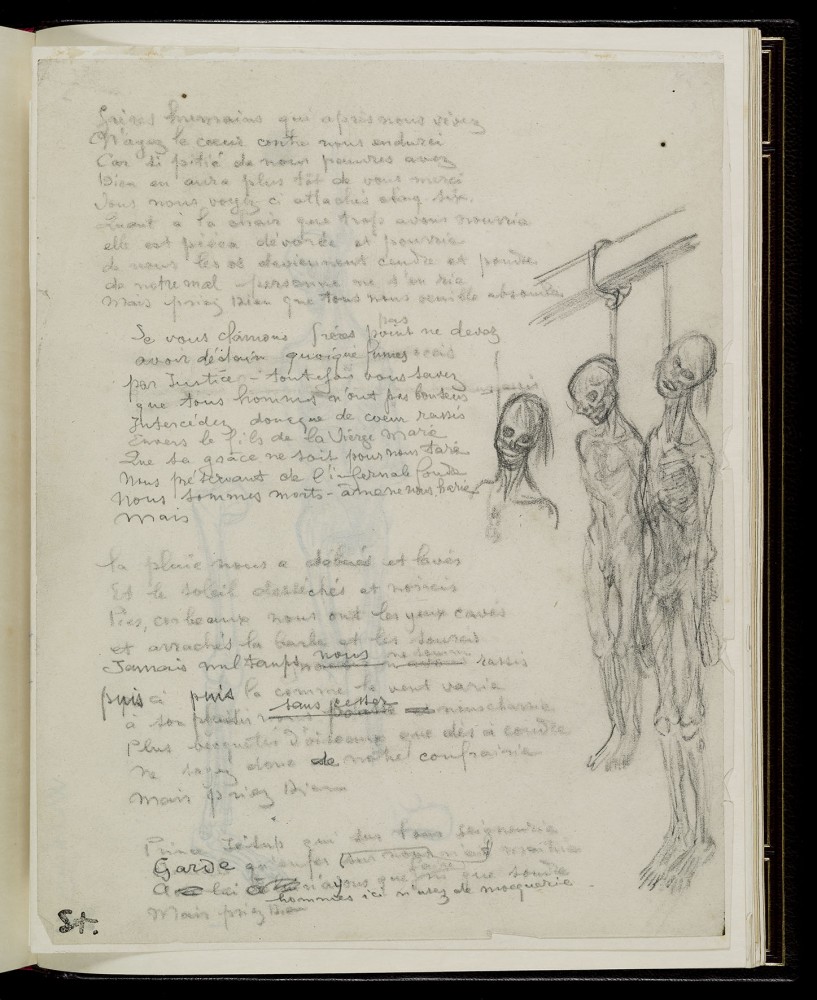 Frères humains qui après nous vivez
N'ayez le cœur contre nous endurci
Car si pitié de nous pauvres avez
Dieu en aura plus tôt de vous merci
Vous nous voyez ci attachés cinq six.
Quant à la chair que trop avons nourrie
elle est pièca dévorée et pourrie
de nous les os deviennent cendre et poudre
de notre mal personne ne s'en rie
Mais priez Dieu que tous nous veuille absoudre
pas
Se vous clâmons frères point ne devez
avoir dédain quoique fumes occis
par Justice - toutefois vous savez
que tous hommes n'ont pas bon sens
Intercédez doncque de cœur rassis
Envers le fils de la Vierge Marie
Que sa grâce ne soit pour nous tarie
Nous préservant de l'infernale foudre
Nous sommes morts - âme ne nous harie
Mais
la pluie nous a débués et lavés
Et le soleil desséchés et noircis
Pies, corbeaux nous ont les yeux cavés
et arrachés la barbe et les sourcis
nous ne somm
Jamais nul temps rassis
puis ci puis la comme le vent varie
sans cesser
à son plaisir nous charrie
Plus becquetés d'oiseaux que dés à coudre
Ne soyez donc de notre confrairie
Mais priez Dieu
Prince Jésus qui sur tous seigneurie
Garde qu'enfer sur nous n'ait maitrie
A lui n'ayons que que soudre
hommes ici n'usez de moquerie
Mais priez Dieu
St.